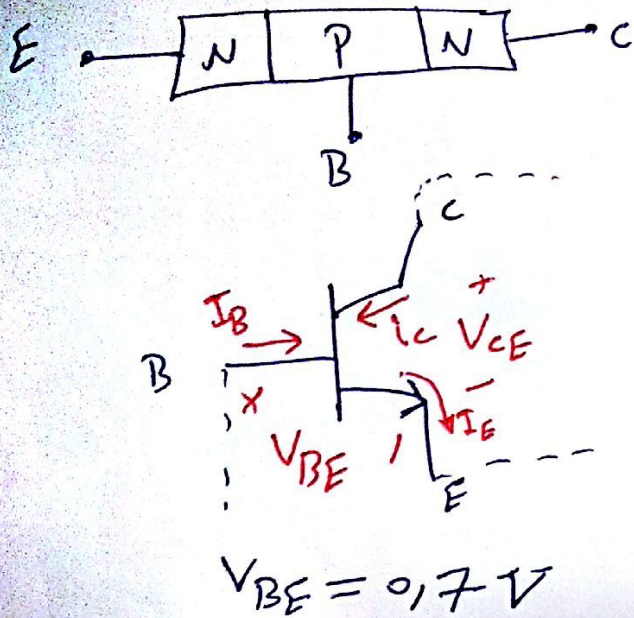 E N P N C
B
C
I_B
i_c V_CE
+
-
B
+
V_BE -
I_E
E
V_BE = 0,7 V